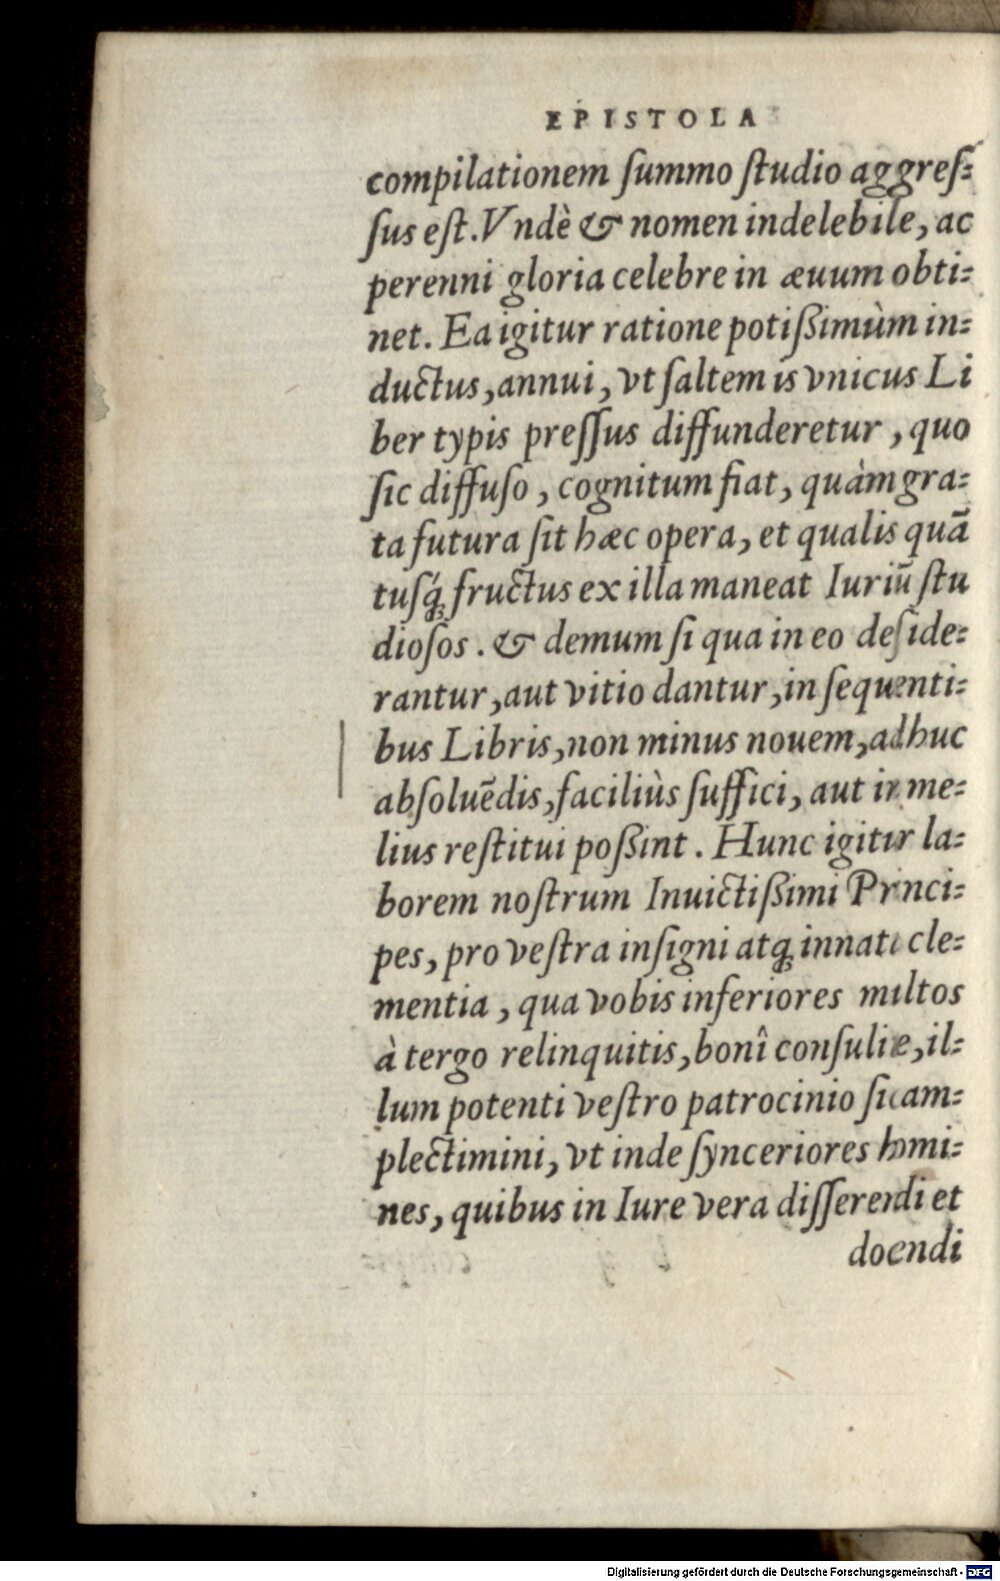 EPISTOLA
compilationem ſummo ſtudio aggreſ⸗
ſus eſt. Vndè & nomen indelebile, ac
perenni gloria celebre in æuum obti⸗
net. Ea igitur ratione potißimùm in⸗
ductus, annui, vt ſaltem is vnicus Li
ber typis preſſus diffunderetur, quo
ſic diffuſo, cognitum fiat, quàm gra⸗
ta futura ſit hæc opera, et qualis quā
tuſq́ꝫ fructus ex illa maneat Iuriū ſtu
dioſos. & demum ſi qua in eo deſide⸗
rantur, aut vitio dantur, in ſequenti⸗
bus Libris, non minus nouem, adhuc
abſoluēdis, faciliùs ſuffici, aut in me⸗
lius reſtitui poßint. Hunc igitur la⸗
borem noſtrum Inuictißimi Princi⸗
pes, pro veſtra inſigni atqꝫ innata cle⸗
mentia, qua vobis inferiores multos
à tergo relinquitis, bonî conſulite, il⸗
lum potenti veſtro patrocinio ſic am⸗
plectimini, vt inde ſynceriores homi⸗
nes, quibus in Iure vera differendi et
docendi
Digitalisierung gefördert durch die Deutsche Forschungsgemeinschaft - DFG